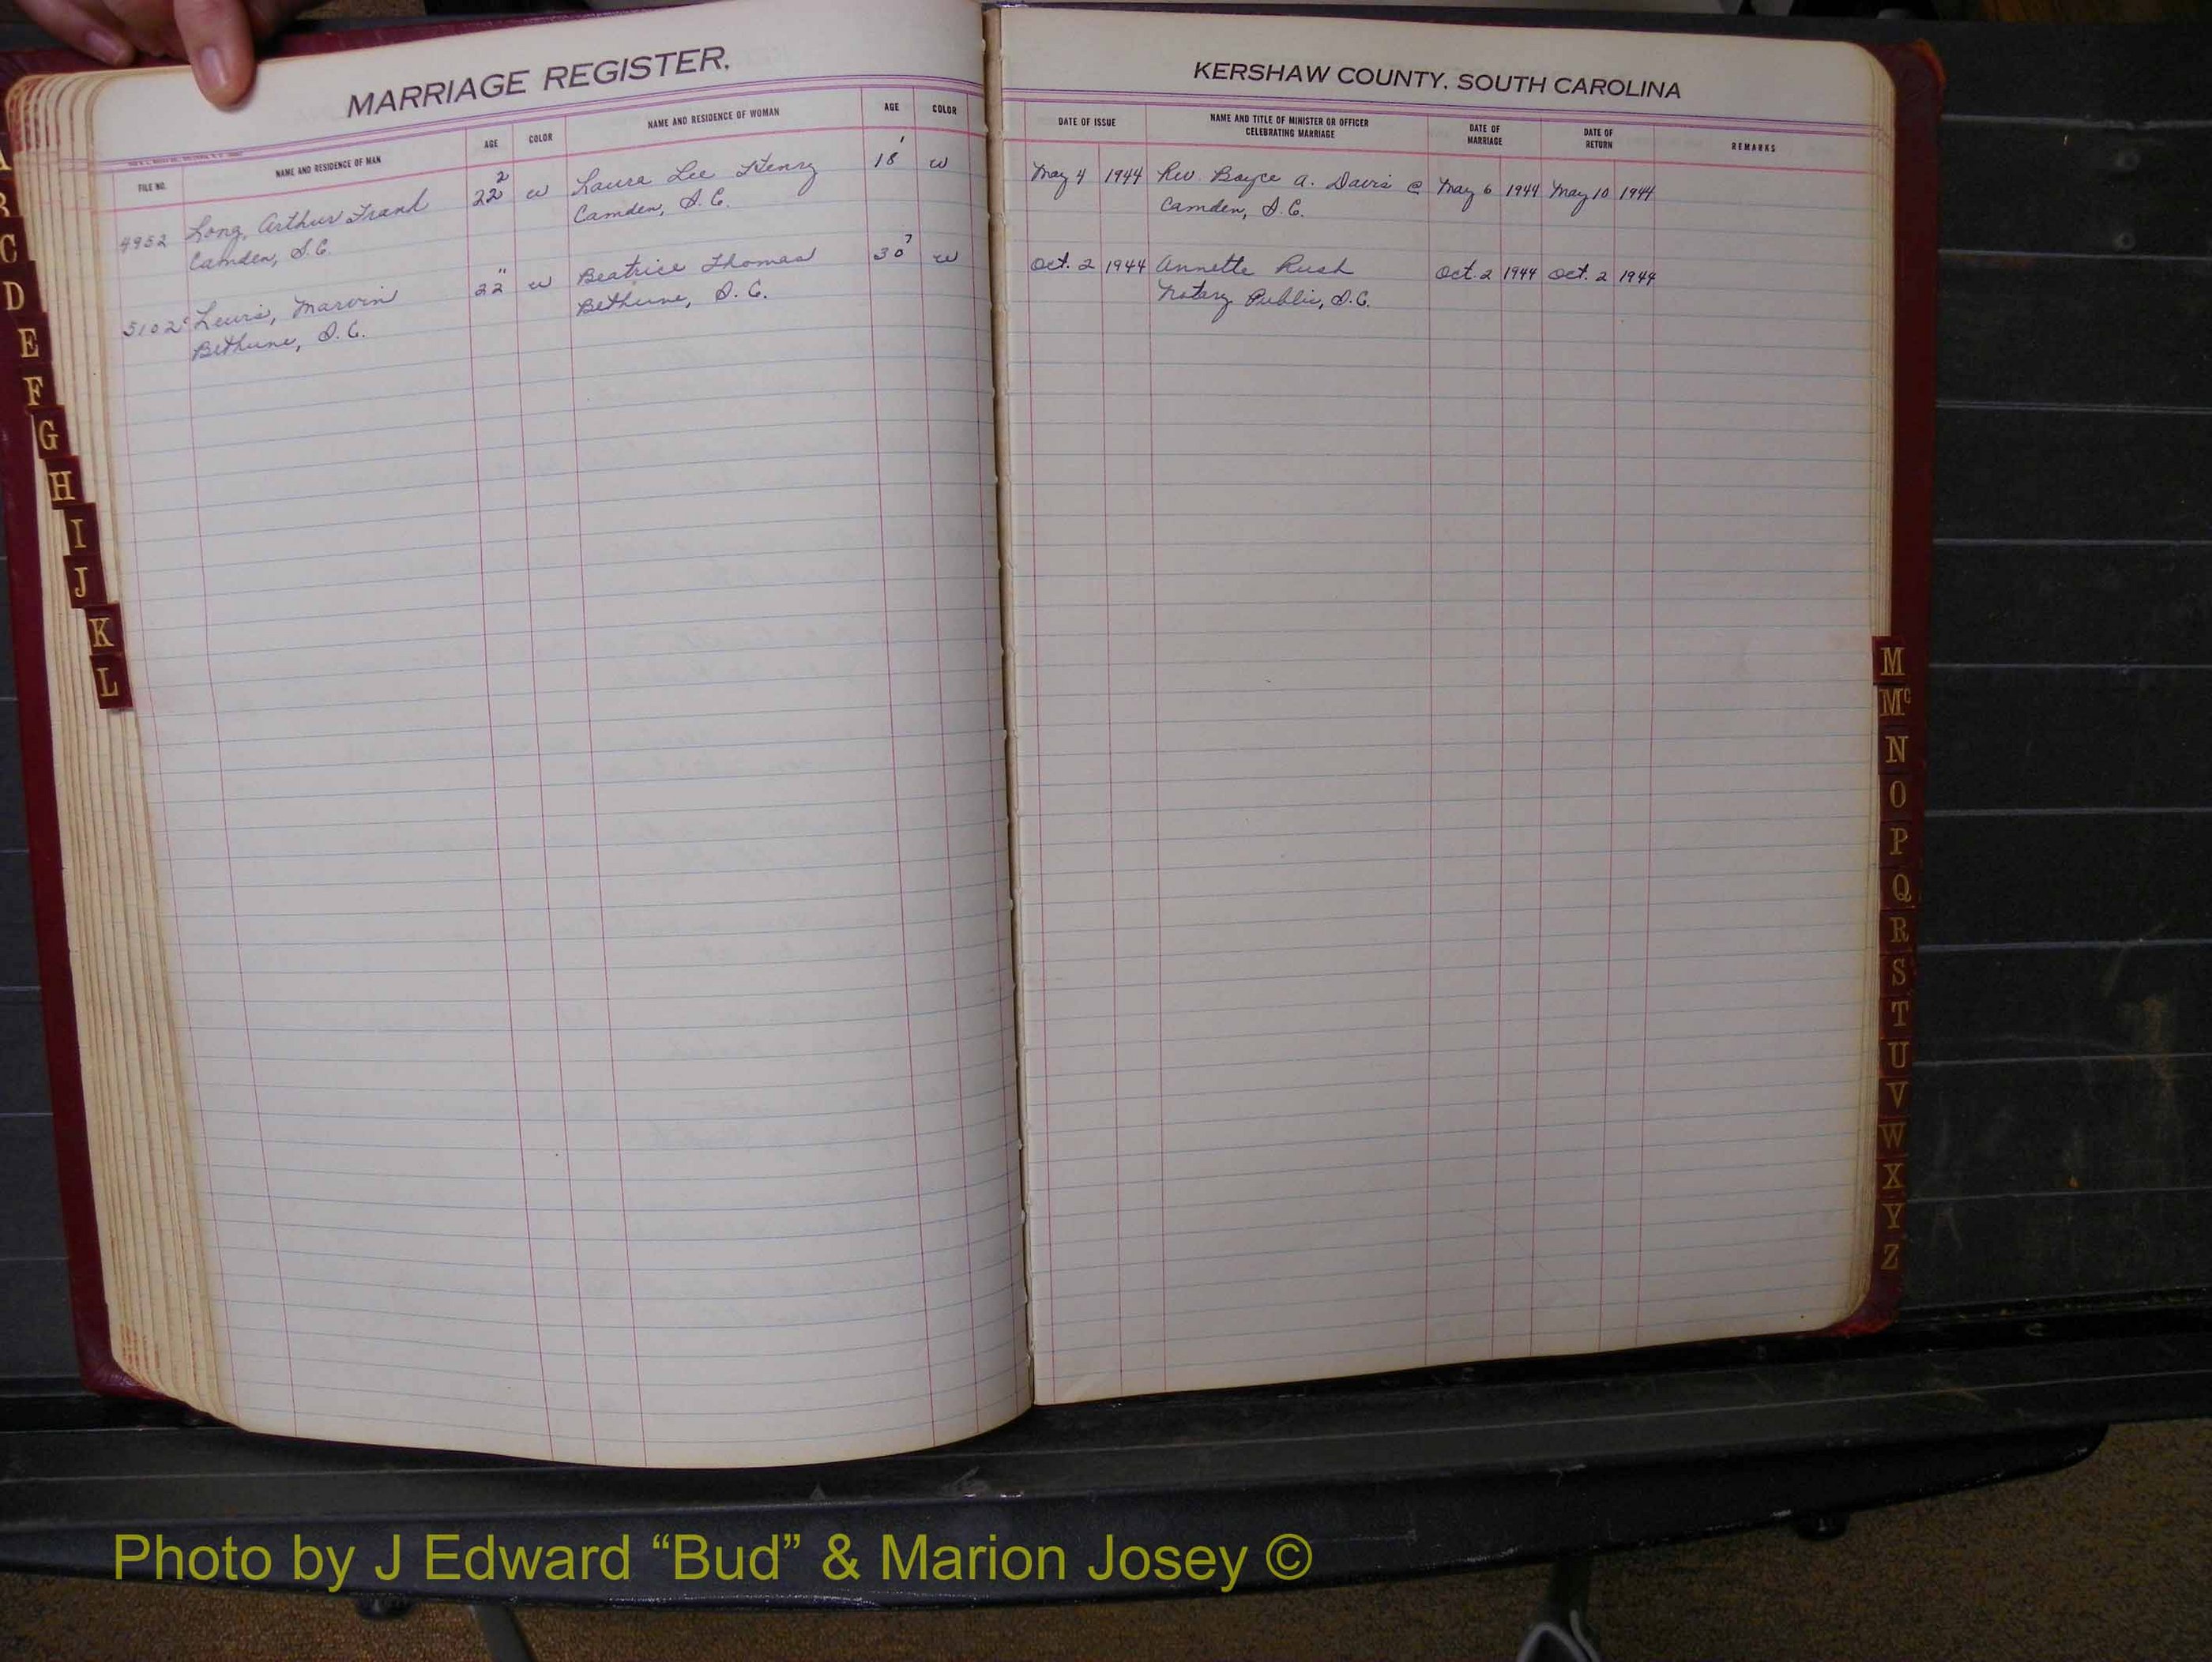 MARRIAGE REGISTER.
FILE NO. NAME AND RESIDENCE OF MAN AGE COLOR NAME AND RESIDENCE OF WOMAN AGE COLOR
4952 Long, Arthur Frank 22 2 w Laura Lee Henry 18 1 w
Camden, S.C. Camden, S.C.
5102 Lewis, Marvin 22 11 w Beatrice Thomas 30 7 w
Bethune, S.C. Bethune, S.C.
KERSHAW COUNTY, SOUTH CAROLINA
DATE OF ISSUE NAME AND TITLE OF MINISTER OR OFFICER CELEBRATING MARRIAGE DATE OF MARRIAGE DATE OF RETURN REMARKS
May 4 1944 Rev. Boyce A. Davis @ May 6 1944 May 10 1944
Camden, S.C.
Oct. 2 1944 Annette Rush Oct. 2 1944 Oct. 2 1944
Notary Public, S.C.
A
B
C
D
E
F
G
H
I
J
K
L
M
Mc
N
O
P
Q
R
S
T
U
V
W
X
Y
Z
Photo by J Edward “Bud” & Marion Josey ©